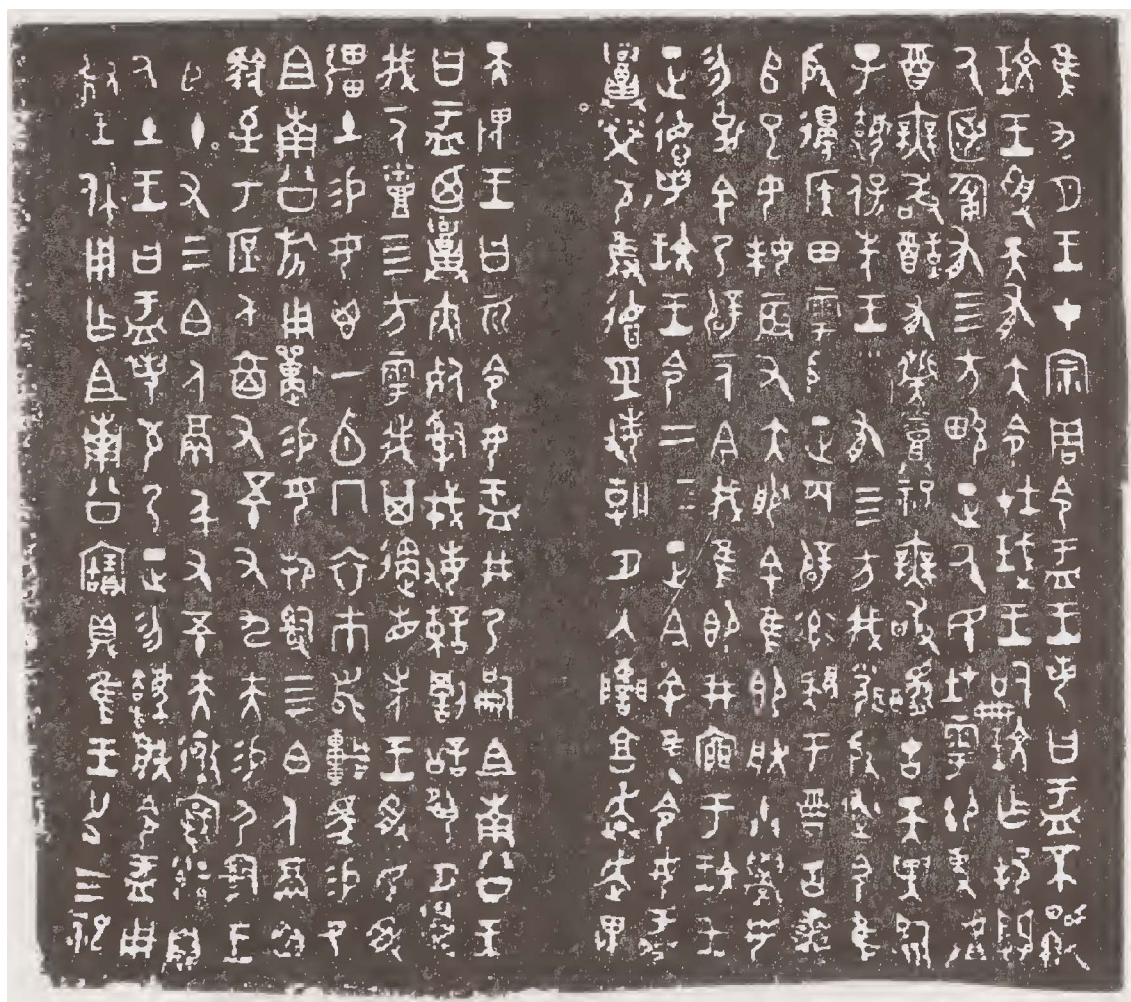 隹九月王才宗周令盂王若曰盂不顯
玟王受天有大令在珷王嗣玟乍邦闢
氒匿匍有四方畯正氒民在雩御事𠭯
酉無敢酖有祡烝祀無敢擾古天異臨
子灋保先王有四方我聞殷述令隹
殷邊侯田雩殷正百辟率肄于酉古喪
𠂤巳女妹辰又大服余隹即朕小學女
勿剋余乃辟一人今我隹即井㐭于玟王
正德若玟王令二三正今余隹令女盂
召榮敬雝德巠敏朝夕入讕享奔走畏
天畏王曰而令女盂井乃嗣且南公王
曰盂廼召夾死𤔲戎敏諫罰訟夙夕召
我一人烝四方雩我其遹省先王受民受
疆土易女鬯一卣冂衣巿舄車馬易乃
且南公旂用遱易女邦𤔲四白人鬲自
馭至于庶人六百又五十又九夫易尸𤔲王
臣十又三白人鬲千又五十夫遷自
氒土王曰盂若敬乃正勿灋朕令盂用
對王休用乍且南公寶鼎隹王廿又三祀